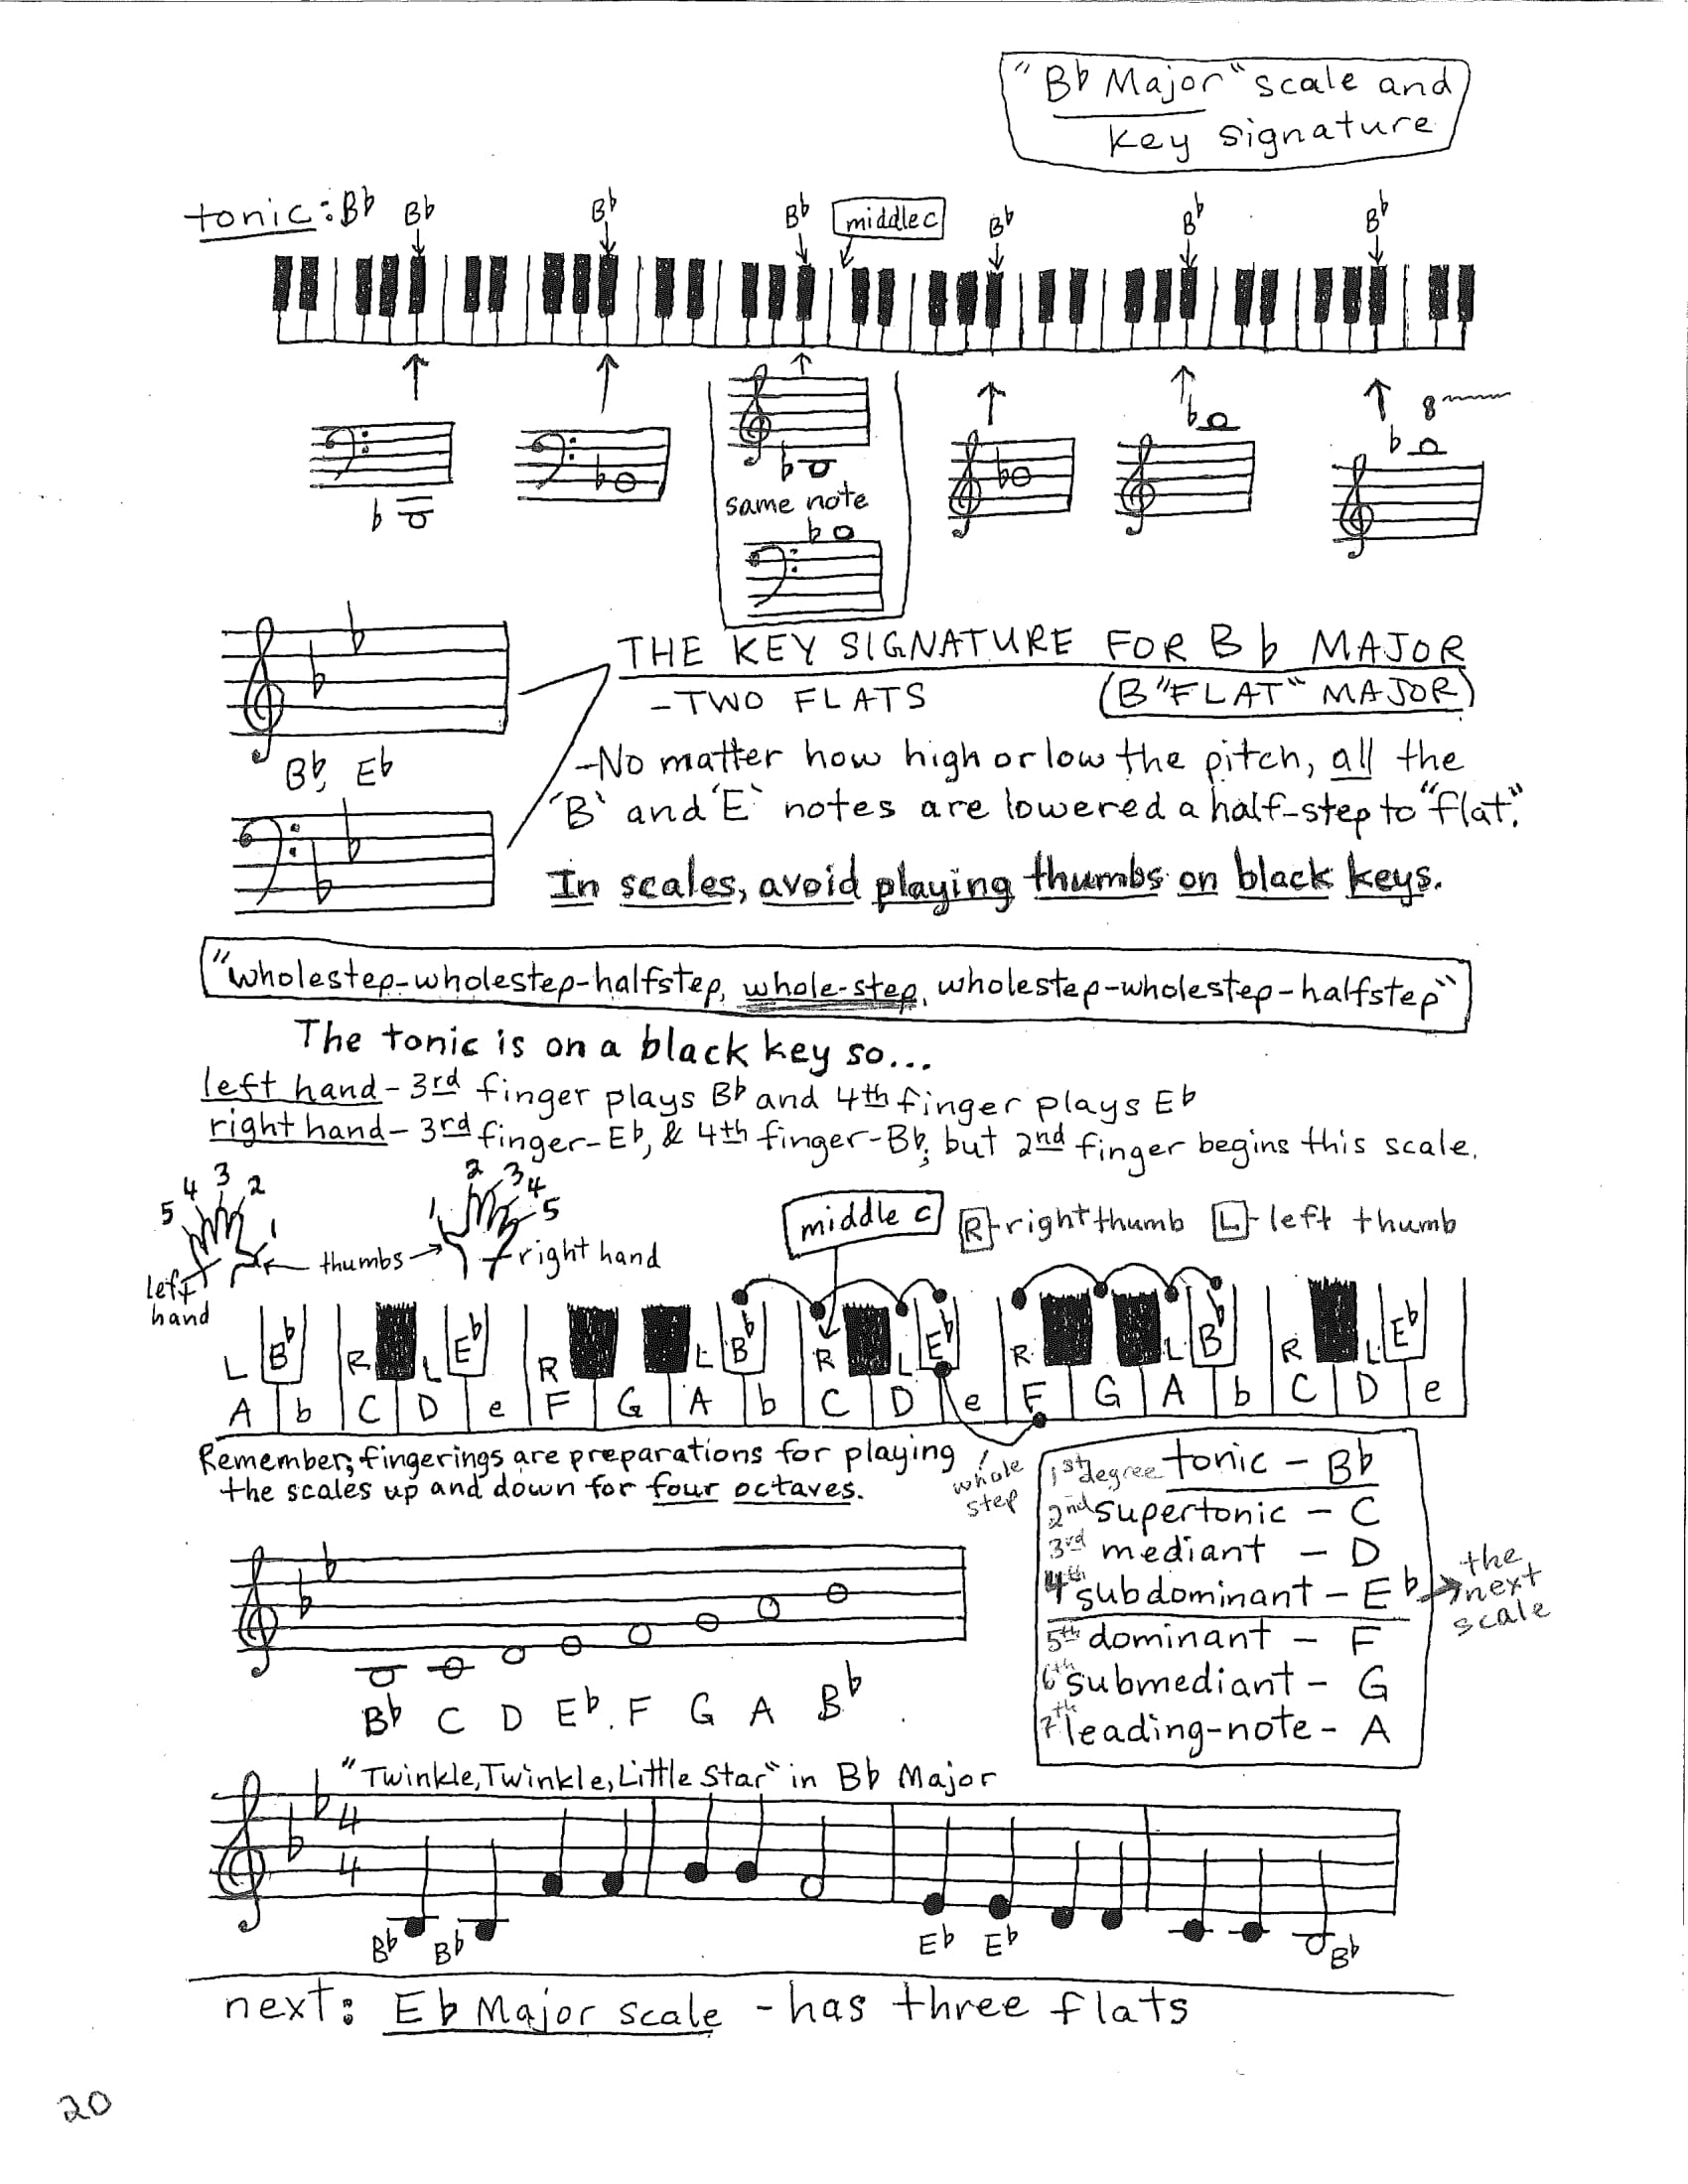 "B♭ Major" scale and
key signature
tonic: B♭ B♭ B♭ B♭ middle c B♭ B♭ B♭
8
same note
THE KEY SIGNATURE FOR B♭ MAJOR
-TWO FLATS (B "FLAT" MAJOR)
B♭, E♭
-No matter how high or low the pitch, all the
'B' and 'E' notes are lowered a half-step to "flat."
In scales, avoid playing thumbs on black keys.
"wholestep-wholestep-halfstep, whole-step, wholestep-wholestep-halfstep"
The tonic is on a black key so...
left hand - 3rd finger plays B♭ and 4th finger plays E♭
right hand - 3rd finger-E♭, & 4th finger-B♭, but 2nd finger begins this scale.
5 4 3 2 1 1 2 3 4 5
middle c R - right thumb L - left thumb
left hand thumbs right hand
L B♭ R L E♭ R L B♭ R L E♭ R L B♭ R L E♭
A b C D e F G A b C D e F G A b C D e
Remember, fingerings are preparations for playing
the scales up and down for four octaves.
whole step
1st degree tonic - B♭
2nd supertonic - C
3rd mediant - D
4th subdominant - E♭ the next scale
5th dominant - F
6th submediant - G
7th leading-note - A
B♭ C D E♭ F G A B♭
"Twinkle, Twinkle, Little Star" in B♭ Major
4
4
B♭ B♭ E♭ E♭ B♭
next: E♭ Major scale - has three flats
20